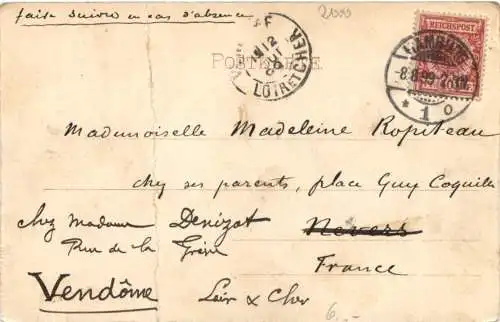 faire suivre en cas d'absence
2000
REICHSPOST
HAMBURG
-8.8.99
* 1 o
12
LOIR ET CHER
POSTKARTE
Mademoiselle Madeleine Ropiteau
chez ses parents, place Guy Coquille
chez Madame Denizot
Nevers
Rue de la Grève
France
Vendôme
Loir & Cher
6.-